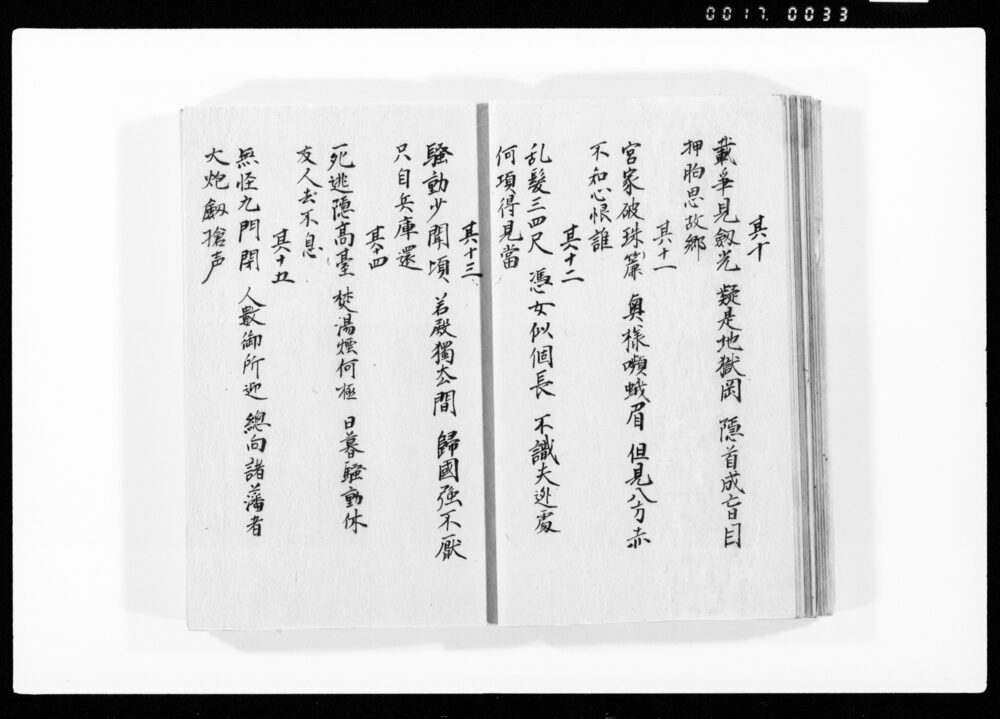 0017.0033
其十
載筆見劔光 疑是地獄岡 隱首成盲目
押胸思故鄉
其十一
宮家破珠簾 奧樣嚬蛾眉 但見八方赤
不和心恨誰
其十二
乱髮三四尺 憑女似個長 不識夫逃處
何項得見當
其十三
騷動少聞頃 若殿獨太間 歸國強不厭
只自兵庫還
其十四
死逃隱高臺 焚湯煙何極 日暮騷動休
友人去不息
其十五
無怪九門閉 人數御所迎 總向諸藩者
大炮劔槍声